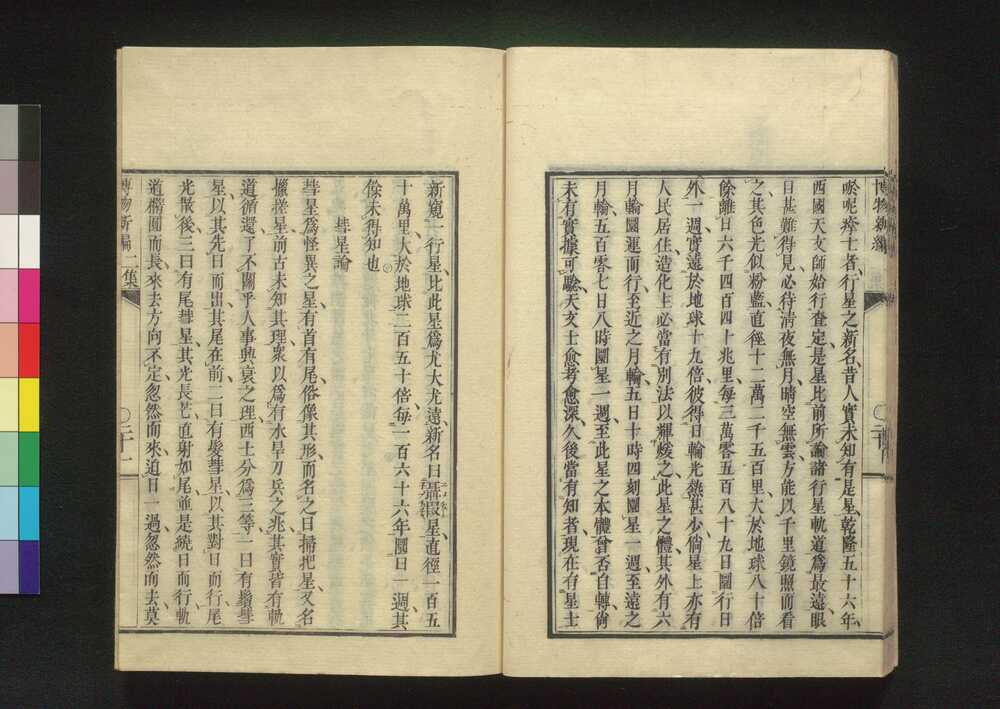 博物新編
唹呢瘆士者、行星之新名、昔人實未知有是星、乾隆五十六年、
西國天文師始行查定、是星比前所論諸行星軌道爲最遠、眼
目甚難得見、必待清夜無月、晴空無雲、方能以千里鏡照而看
之、其色光似粉藍、直徑十二萬二千五百里、大於地球八十倍
餘、離日六千四百四十兆里、每三萬零五百八十九日圜行日
外一週、實遠於地球十九倍、彼得日輪光熱甚少、倘星上亦有
人民居住、造化主必當有別法以輝煖之、此星之體、其外有六
月輪圜運而行、至近之月輪、五日十時四刻圜星一週、至遠之
月輪、五百零七日八時圜星一週、至此星之本體、曾否自轉、尙
未有實據可驗、天文士愈考愈深、久後當有知者、現在有星士
新窺一行星、比此星爲尤大尤遠、新名曰 星、直徑一百五
十萬里、大於地球二百五十倍、每二百六十六年圜日一週、其
餘未得知也
彗星論
彗星爲怪異之星、有首有尾、俗像其形而名之曰掃把星、又名
攙搶星、前古未知其理、衆以爲有水旱刀兵之兆、其實皆有軌
道、循還了不關乎人事興衰之理、西士分爲三等、一曰有鬚彗
星、以其先日而出、其尾在前、二曰有髮彗星、以其對日而行、尾
光散後、三曰有尾彗星、其光長芒直射如尾、並是繞日而行、軌
道橢圓而長、來去方向不定、忽然而來、迫日一過、忽然而去、莫
博物新編二集
三十一